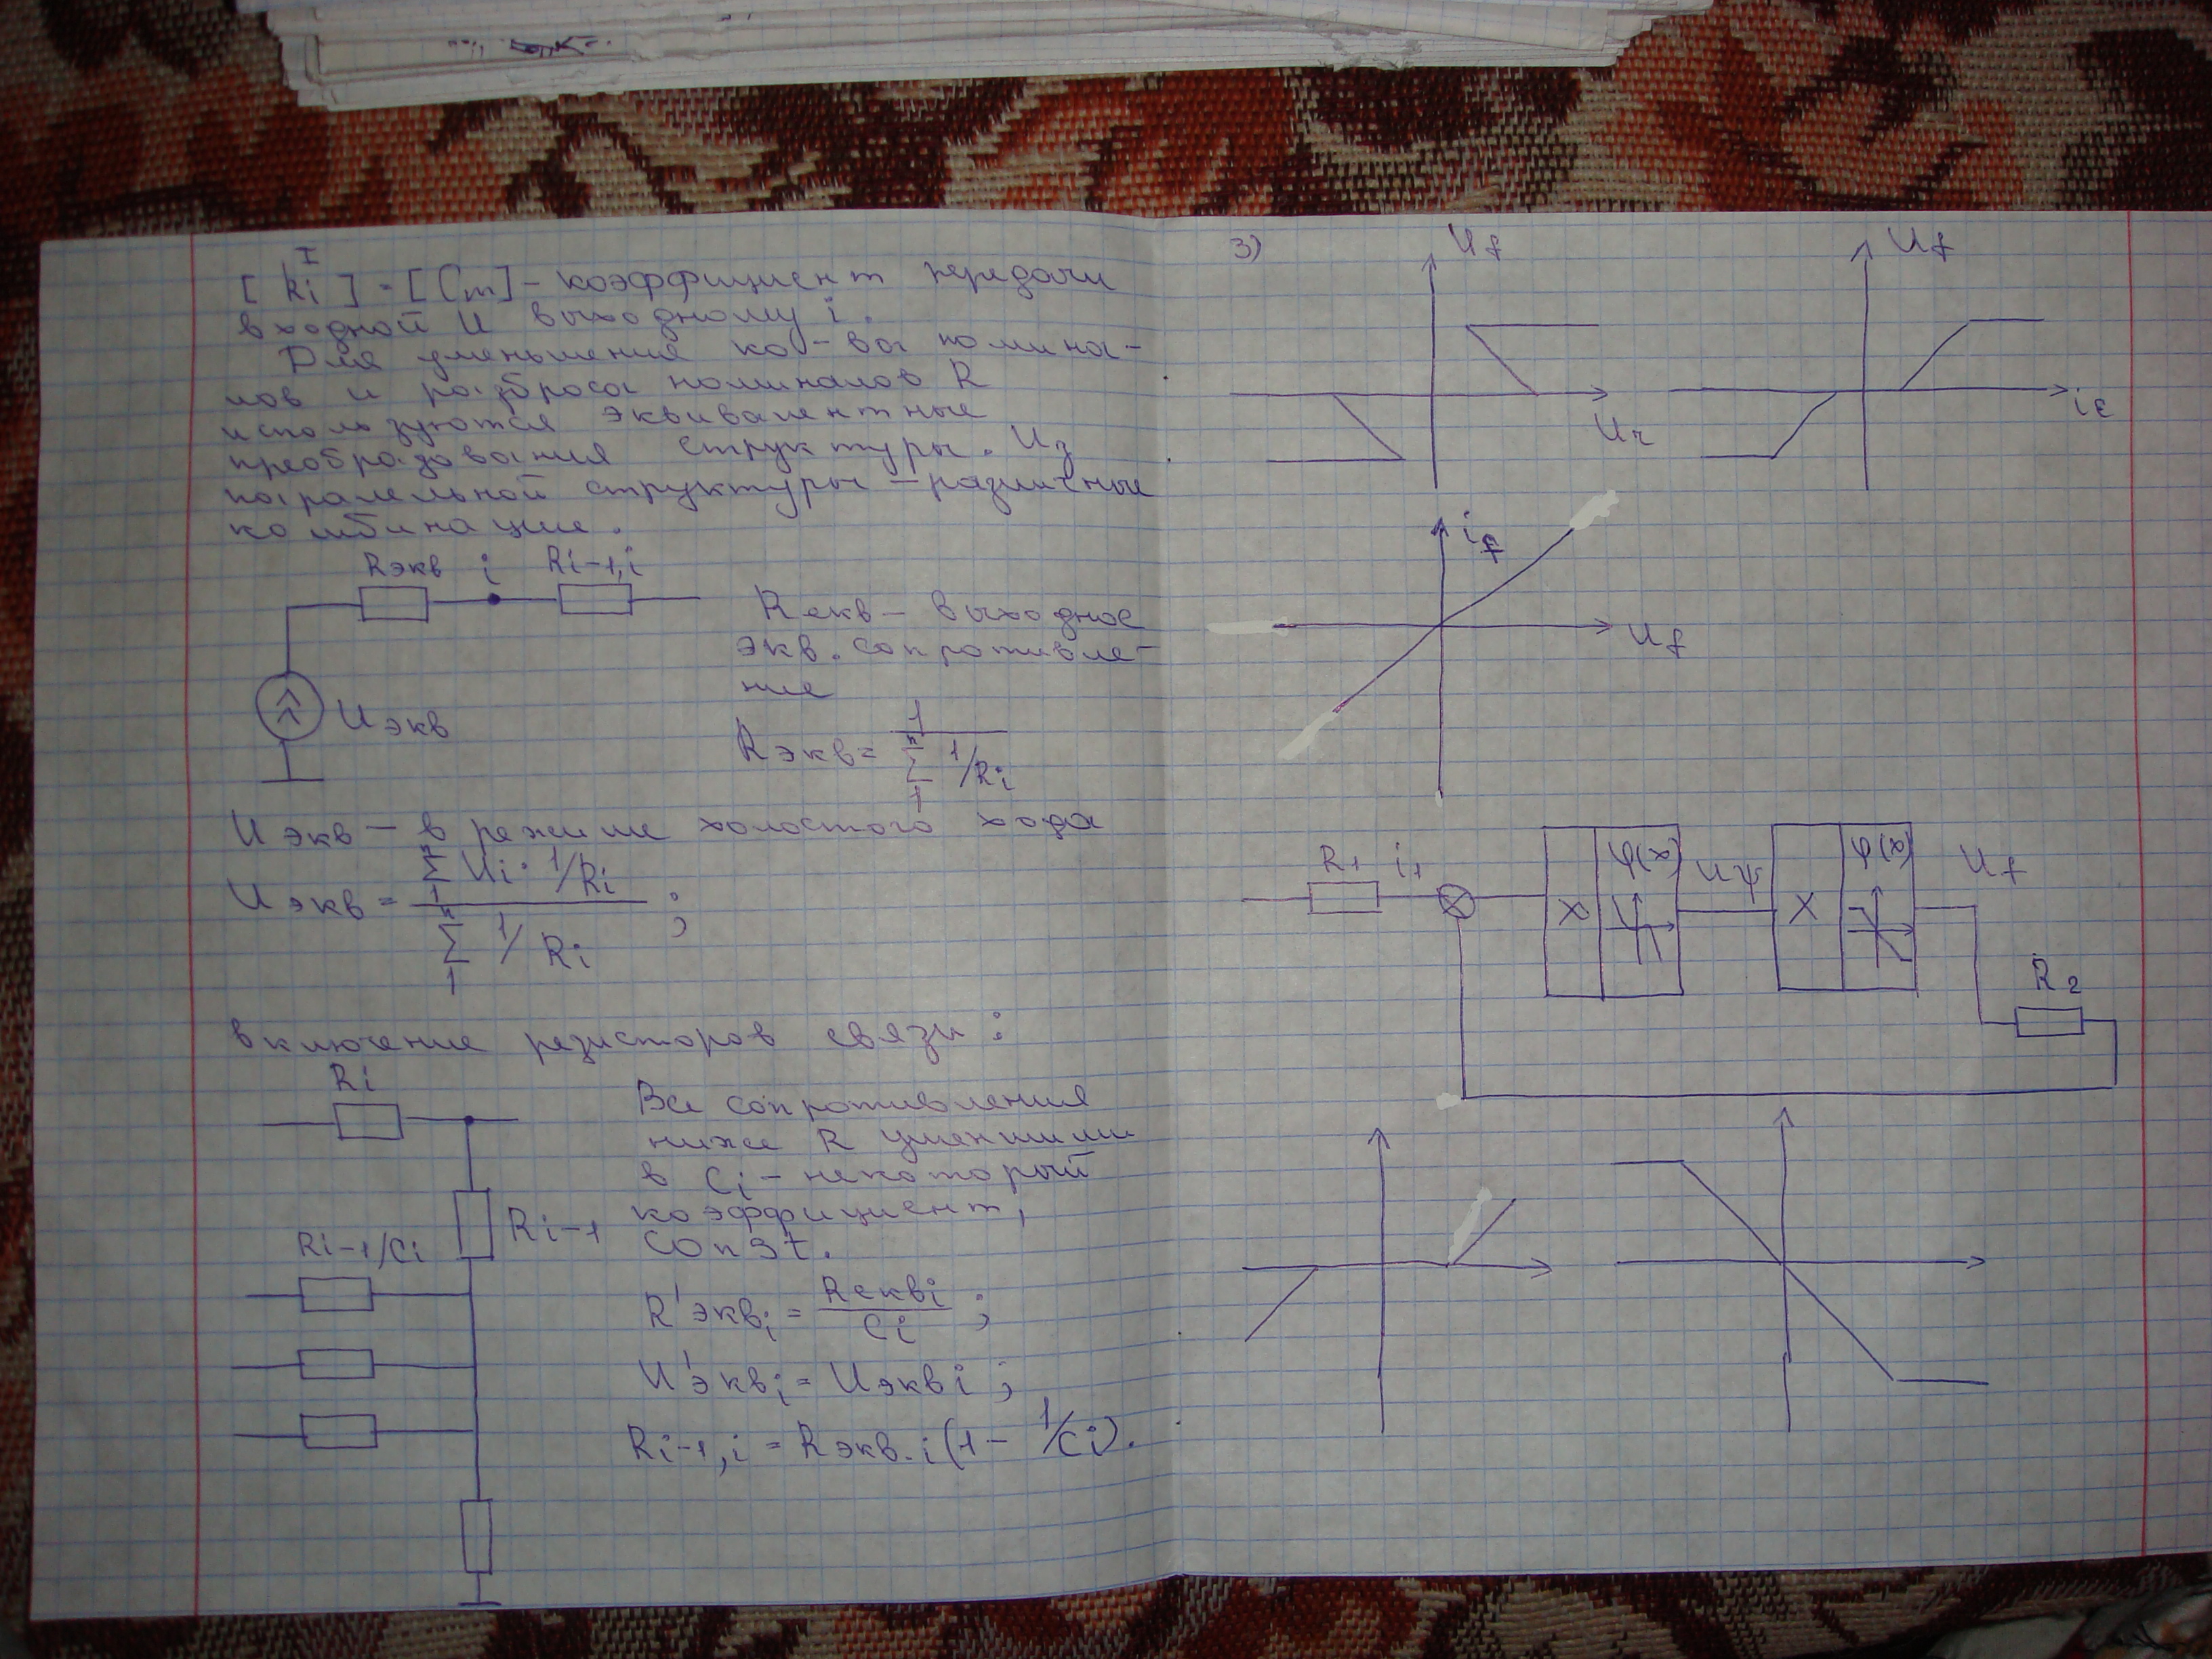 I
[ Ri ] = [Cm] - коэффициент передачи
входной U выходному i.
Для уменьшения кол-ва номина-
лов и разброса номиналов R
используются эквивалентные
преобразования структуры. Из
паралельной структуры - различные
комбинации.
Rэкв i Ri-1,i
Uэкв
Rекв - выходное
экв. сопротивле-
ние
Rэкв = 1 / n Σ 1 1/Ri
Uэкв - в режиме холостого хода
Uэкв = n Σ 1 Ui · 1/Ri / n Σ 1 1/Ri ;
включение резисторов связи:
Ri
Ri-1
Ri-1/Ci
Все сопротивления
ниже R уменшили
в Ci - некоторый
коэффициент,
const.
R'эквi = Rеквi / Ci ;
U'эквi = Uэквi ;
Ri-1,i = Rэкв.i (1 - 1/Ci).
3)
Uf
Ur
Uf
iε
if
Uf
R1 i1
X φ(x)
Uψ
X φ(x)
Uf
R2